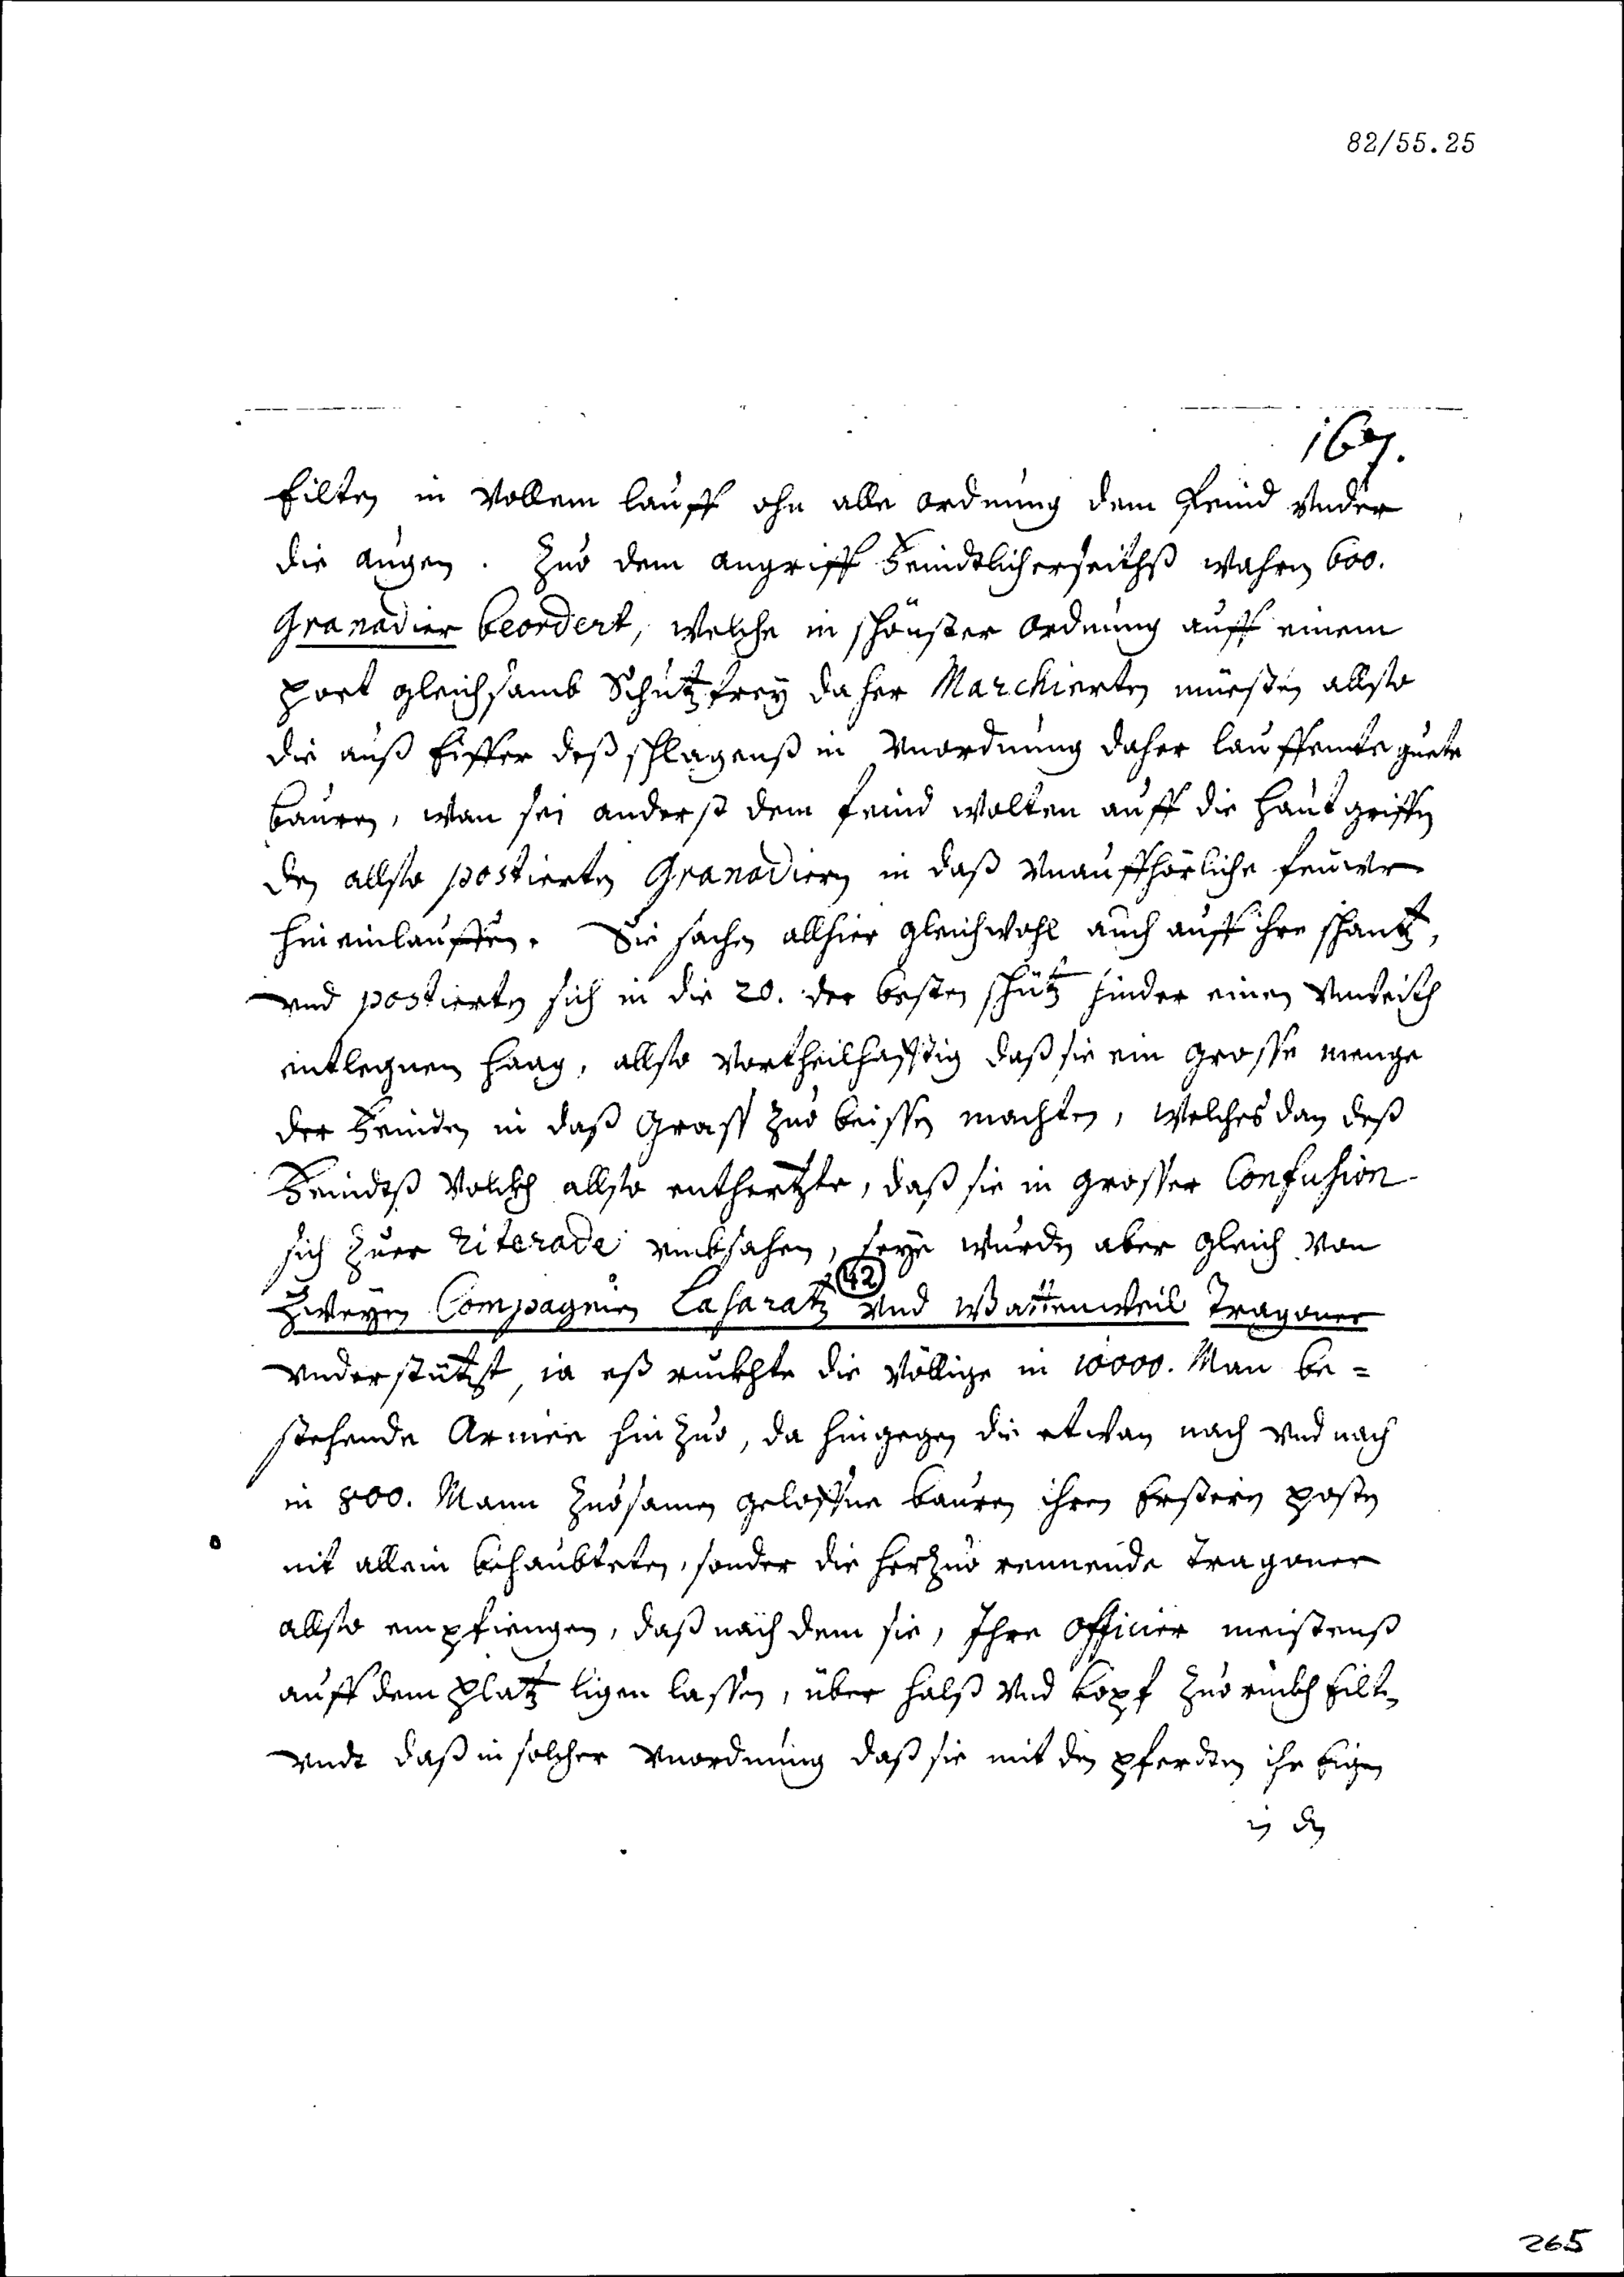 82/55.25
167.
Eilten in vollem lauff ohn alle ordnung dem Feind vnder
die augen. Zuo dem angriff Feindtlicherseithß wahren 600.
Granadier beordert, welche in schönster ordnung auff einem
port gleichsamb Schutzfrey daher Marchierten müesten allso
die auß Eiffer deß schlagenß in vnordnung daher lauffente guete
bauren, wan sei anderst dem feind wolten auff die haut griffen
den allso postierten Granadiern in daß vnauffhörliche feüwr
hineinlauffen. Sie sachen allhier gleichwohl auch auff ihre schantz,
vnd postierten sich in die 20. der besten schütz hinder einen
entlegnen haag, allso vortheilhafftig daß sie ein grosse menge
der Feinden in daß Grass zuo beissen machten, welches dan deß
Feindtß volckh allso enthertzte, daß sie in grosser Confusion
sich zuer riterade vmbsahen, seye wurden aber gleich von
zweyen Compagnien Lasaratz (42) vnd Wattenweil Tragoner
vnderstützt, ia eß ruckhte die völlige in 10000. Man be=
stehende Armée hinzuo, da hingegen die etwan nach vnd nach
in 800. Mann zuosamen geloffne bauren ihren Ersteren posten
nit allein behaubteten, sonder die herzuo rennende Tragoner
allso empfiengen, daß nach dem sie, Ihre Officier meistenß
auff dem platz ligen lassen, über halß vnd kopf zuoruckh Eilten
vndt daß in solcher vnordnung daß sie mit den pferdten ihr Eigen
in den
265